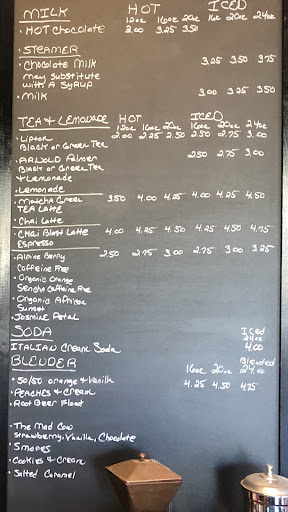 MILK HOT ICED
12oz 16oz 20oz 16oz 20oz 24oz
• HOT Chocolate 3.00 3.25 3.50
STEAMER
• Chocolate Milk 3.25 3.50 3.75
may substitute
with A Syrup
• Milk 3.00 3.25 3.50
TEA & LEMONADE HOT ICED
12oz 16oz 20oz 16oz 20oz 24oz
• Lipton 2.00 2.25 2.50 2.50 2.75 3.00
Black or Green Tea
• ARNOLD Palmer 2.50 2.75 3.00
Black or Green Tea
& Lemonade
• Lemonade
• Matcha Green 3.50 4.00 4.25 4.00 4.25 4.50
TEA Latte
• Chai Latte
• CHai Blast Latte 4.00 4.25 4.50 4.25 4.50 4.75
Espresso
• Alpine Berry 2.50 2.75 3.00 2.75 3.00 3.25
Caffeine Free
• Organic Orange
Sencha Caffeine Free
• Organic African
Sunset
• Jasmine Petal
SODA Iced
24oz
ITALIAN Cream Soda 4.00
BLENDER Blended
16oz 20oz 24.00
• 50/50 orange & Vanilla 4.25 4.50 4.75
• PEACHES & Cream
• Root Beer Float
• The Mad Cow
Strawberry, Vanilla, Chocolate
• Smores
• Cookies & Cream
• Salted Caramel